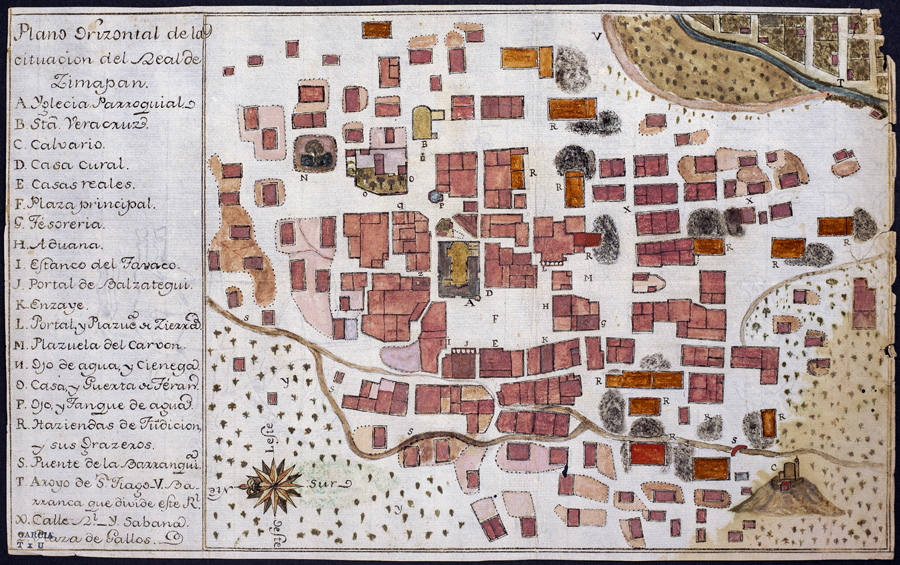 Plano Orizontal de la
cituacion del Real de
Zimapan.
A. Yglecia Parroquial
B. Sta. Veracruz.
C. Calvario.
D. Casa Cural.
E Casas reales.
F. Plaza principal.
G. Tesoreria.
H. Aduana.
I. Estanco del Tavaco.
J. Portal de Balzategui.
K. Enzaye.
L. Portal, y Plazue
M. Plazuela del Carvon.
N. Ojo de agua, y Cienega
O. Casa, y Puerta
P. Ojo, y Tanque de agua
R. Haziendas de Fūdicion,
y sus Grazeros.
S. Puente de la
T Arroyo de Stiago V. Ba-
rranca que divide este Rl
X. Calle Rl Y. Sabana.
GARCIA
TxU
Plaza de Gallos.
V
T
R
R
B
N
O
O
P
Q
R
X
X
R
R
R
R
S
Z
A
D
L
M
H
G
F
I
J
E
K
S
S
R
R
R
R
S
C
Y
Y
Leste
Sur
Oeste